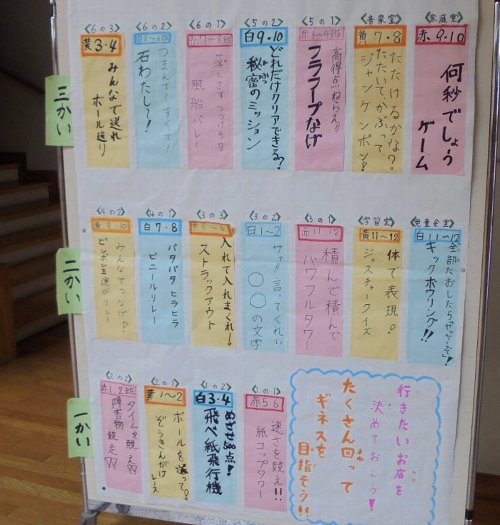 三かい
《家庭室》
赤 9・10
何秒でしょう
ゲーム
《音楽室》
黄 7・8
たたけるかな?
たたいて、かぶって
ジャンケンポン!
《5の1》
赤 3~4班
高得点ねらえ!!
フラフープなげ
《5の2》
白 9・10
どれだけクリアできる?
秘密のミッション
《6の1》
風船バレー
《6の2》
石わたし~!
《6の3》
黄 3・4
みんなで送れ
ボール送り
二かい
《児童会室》
白 11~12
全部たおしたらヤッター!!
キックボウリング!!
《学習室》
黄 11~12
体で表現!
ジェスチャークイズ
《3の1》
赤 11・12
積んで積んで
パワフルタワー
《3の2》
白 1~2
サッと言ってくれい
〇〇の文字
《3の3》
黄 5~6
入れて入れまくれ!
ストラックアウト
《4の1》
白 7・8
バタバタヒラヒラ
ビニールリレー
《4の2》
黄 9・10
みんなでつなげ!
ピンポン玉運びリレー
一かい
《1の1》
赤 5・6
速さを競え!!
紙コップタワー
《1の2》
白 3・4
めざせ500点!
飛べ紙飛行機
《2の1》
黄 1~2
ボールを送って!
ぞうきんがけ
レース
《2の2》
赤 1・2班
タイムを競え
障害物競走
行きたいお店を
決めておこう!
たくさん回って
ギネスを
目指そう!!